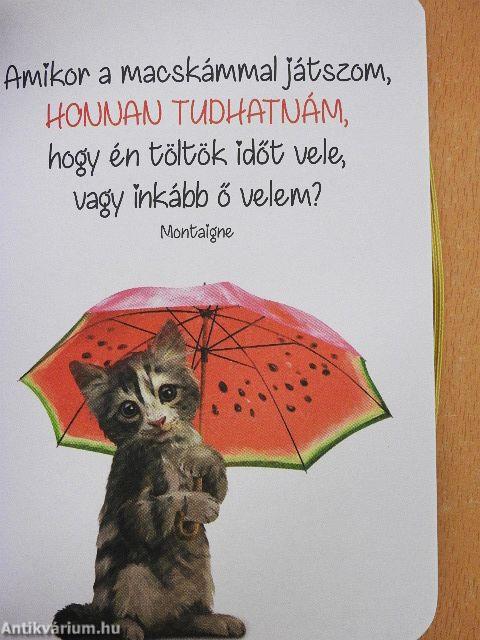 Amikor a macskámmal játszom,
HONNAN TUDHATNÁM,
hogy én töltök időt vele,
vagy inkább ő velem?
Montaigne
Antikvárium.hu